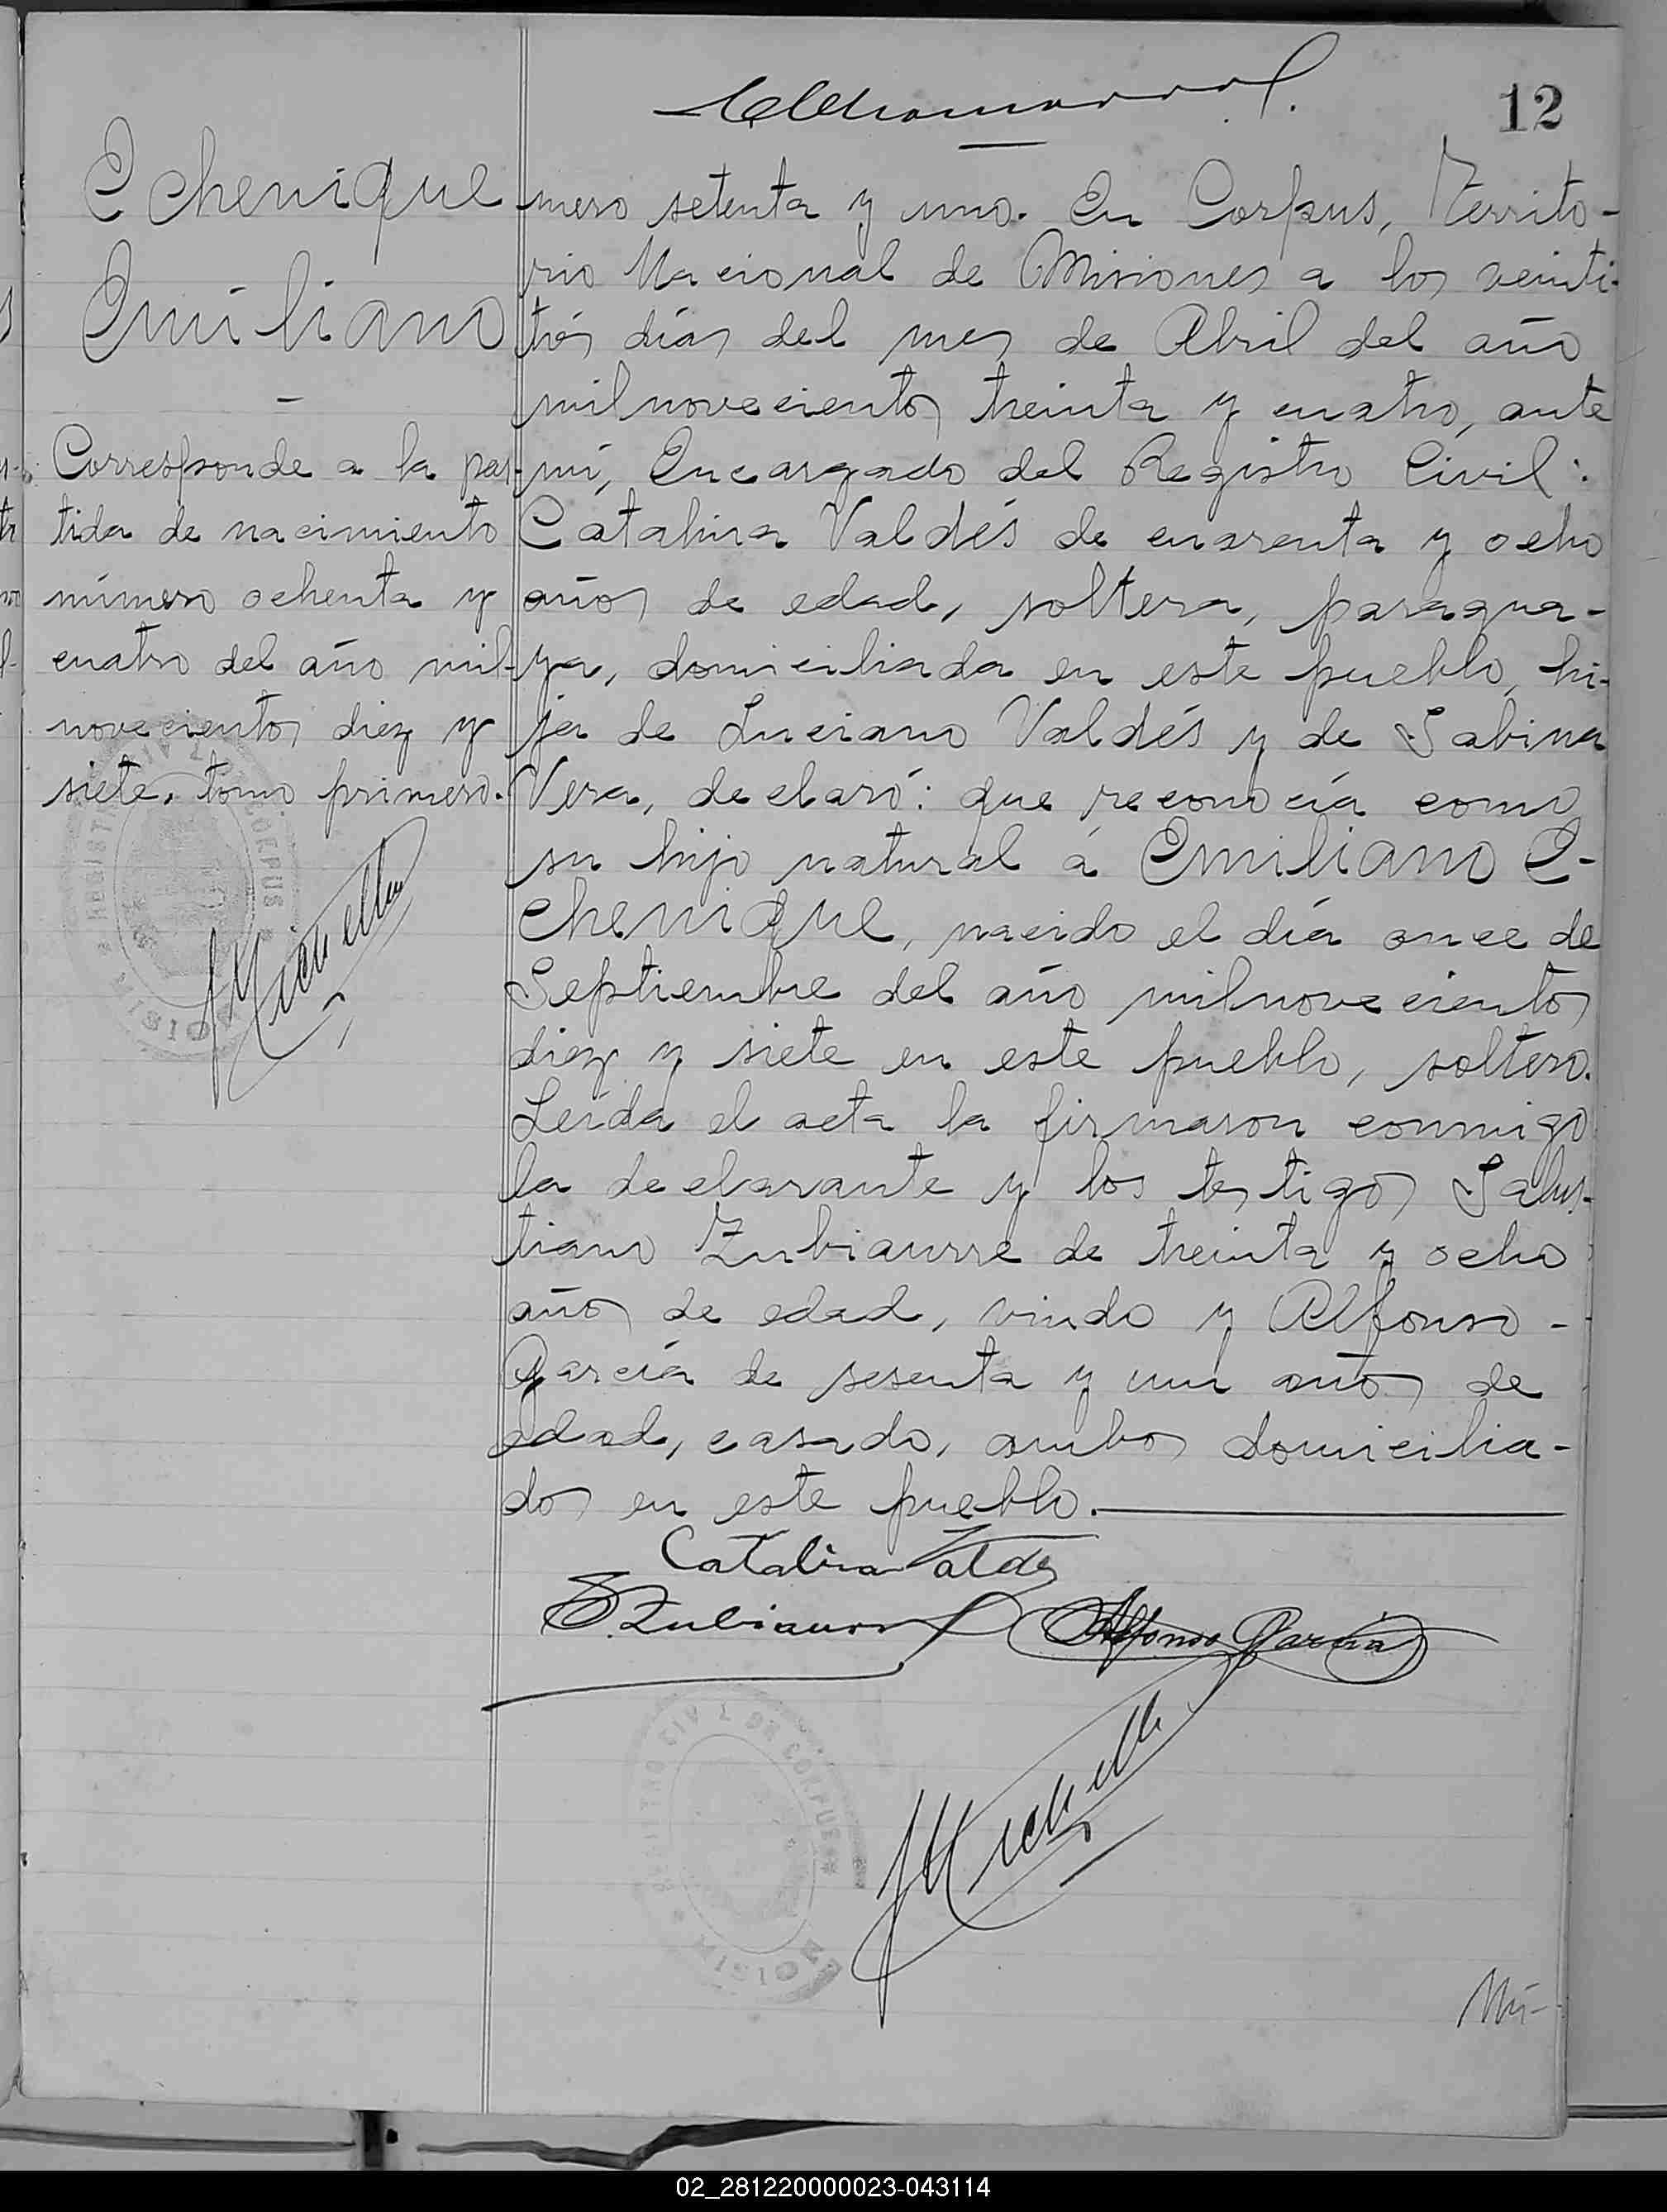 12
Echenique
Emiliano
Corresponde a la par-
tida de nacimiento
número ochenta y
cuatro del año mil-
novecientos diez y
siete, tomo primero.
mero setenta y uno. En Corpus, Territo-
rio Nacional de Misiones a los veinti-
trés días del mes de Abril del año
milnovecientos treinta y cuatro, ante
mí, Encargado del Registro Civil:
Catalina Valdés de cuarenta y ocho
años de edad, soltera, paragua-
ya, domiciliada en este pueblo, hi-
ja de Luciano Valdés y de Sabina
Vera, declaró: que reconocía como
su hijo natural á Emiliano E-
chenique, nacido el día once de
Septiembre del año milnovecientos
diez y siete en este pueblo, soltero.
Leída el acta la firmaron conmigo
la declarante y los testigos Salus-
tiano Zubiaurre de treinta y ocho
años de edad, viudo y Alfonso -
García de sesenta y un años de
edad, casado, ambos domicilia-
dos en este pueblo.
Catalina Valdes
S. Zubiaurre Alfonso Garcia
REGISTRO CIVIL DE CORPUS
MISIONES
Nú-
02_281220000023-043114